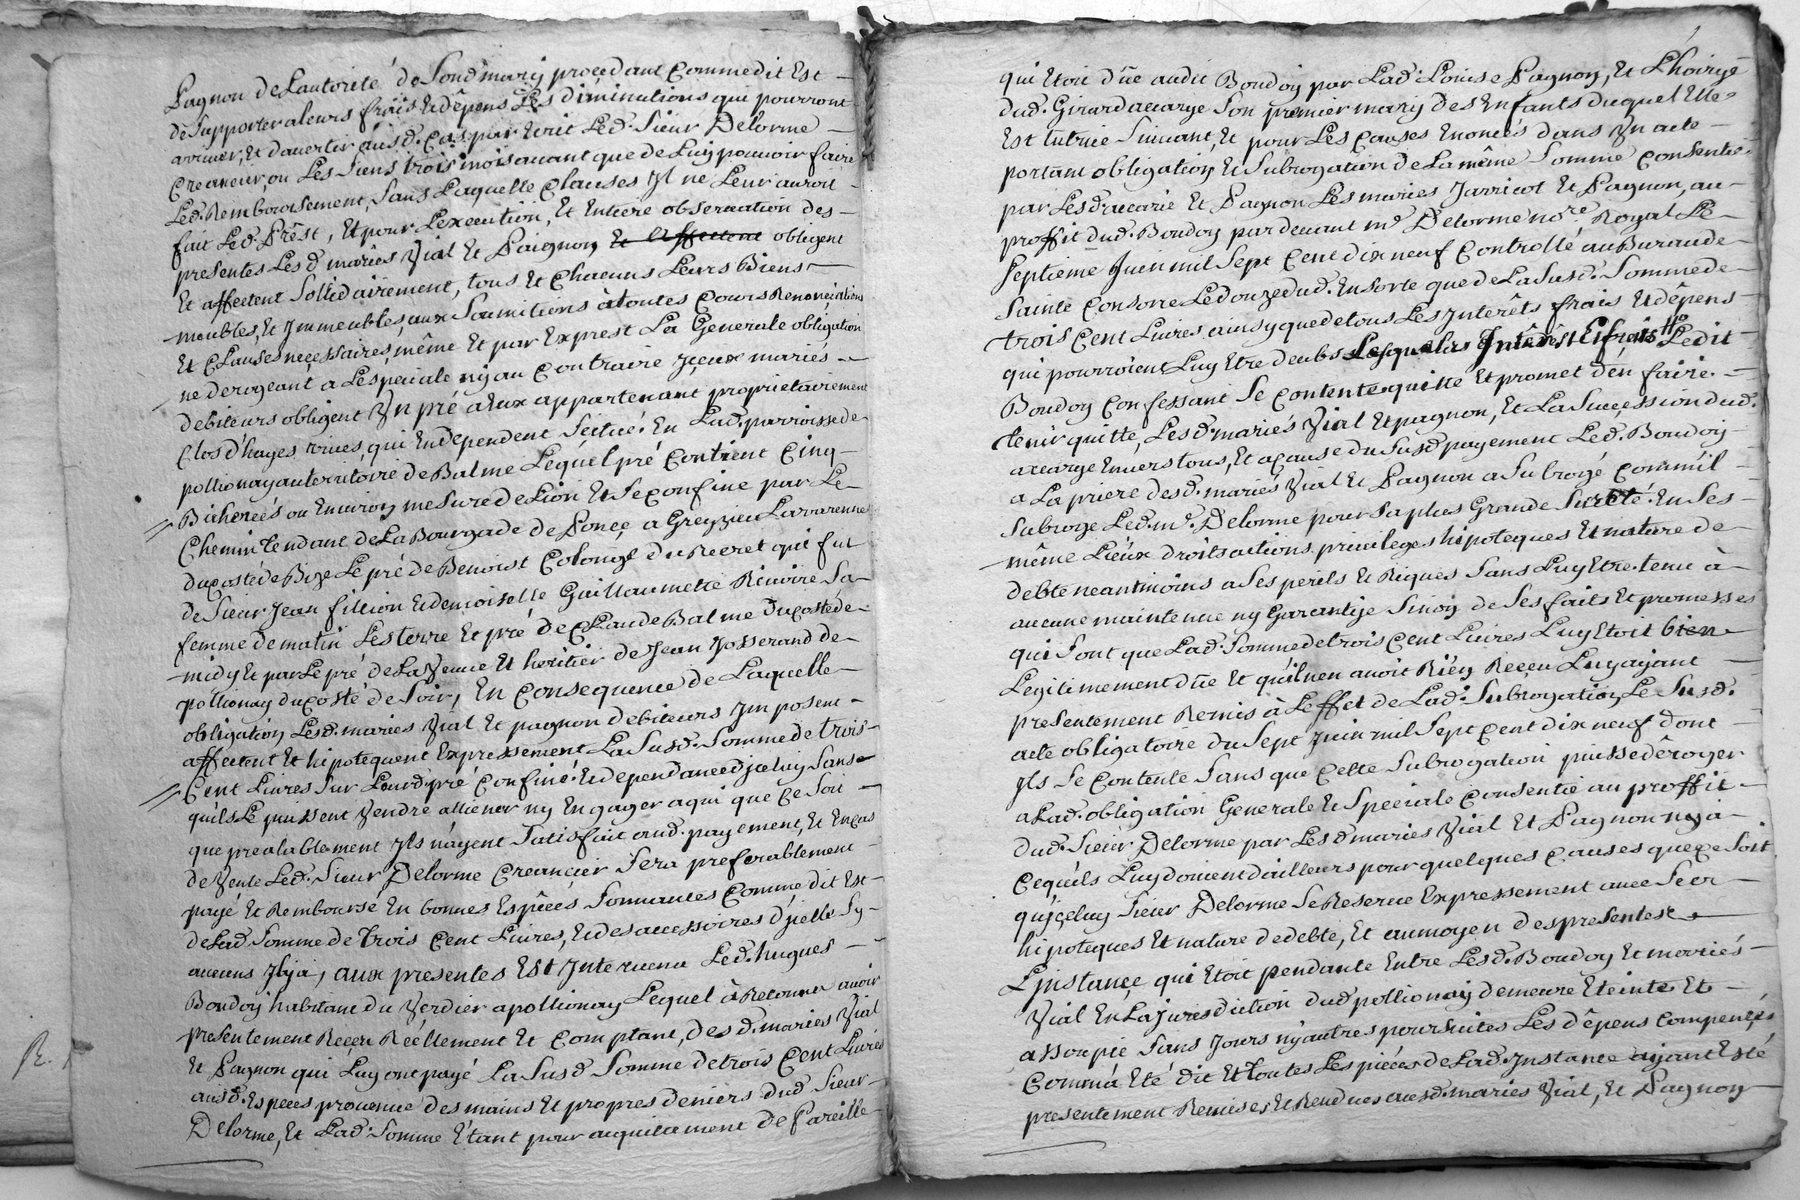 Pagnon de Lautorité de Sond mary procedant Comme dit Est
de Supporter a leurs frais Et dêpens Les diminutions qui pourront
arriver, Et davertir ausd. Cas par Ecrit Led. Sieur Delorme
Creancier, ou Les Siens trois mois avant que de Luy pouvoir faire
Led. Remboursement, Sans Laquelle Clauses Jl ne Leur auroit
fait Led. Prêst, Et pour Lexecution, Et Entiere observation des
presentes Lesd. mariés Vial Et Pagnon, Et affectent obligent
Et affectent Sollidairement, tous Et Chacuns Leurs Biens
meubles, Et Jmmeubles, aux Soumitions à toutes Cours Renonciations
Et Clauses neçessaires, même Et par Exprest La Generale obligation
ne derogeant a Lespeciale ny au Contraire Jceux mariés
debiteurs obligent Vn pré a Eux appartenant proprietairement
Clos d'hayes vives, qui En dependent Scitué En Lad. parroisse de
pollionay au territoire de Balme Lequel pré Contient Cinq
Bicherées ou Environ mesure de Lion Et Se Confine par Le
Chemin tendant de La Bourgade de a Greyzieu Lavarenne
du Costé de Bize Le pré de Benoist Colonge du qui fut
de Sieur Jean fillion Et demoiselle Guillaumette Riviore Sa
femme de matin Les terre Et pré de Claude Balme du Costé de
midy Et par Le pré de La Veuve Et heritier de Jean Josserand de
pollionay du Costé de Soir, En Consequence de Laquelle
obligation, Lesd. mariés Vial Et pagnon debiteurs Jmposent
affectent Et hipotequent Expressement La Susd. Somme de trois
Cent Livres Sur Leurd pré Confiné Et dependance d'jceluy Sans
quils Le puissent Vendre alliener ny Engager a qui que Ce Soit
que prealablement Jls n'ayent Satisfait aud. payement, Et En Cas
de Vente Led. Sieur Delorme Creancier Sera preferablement
payé Et Remboursé En bonnes Espéces Sonnantes Comme dit Est
de Lad Somme de trois Cent Livres, Et des accessoires d'jcelle Sy
aucuns Jlya, aux presentes Est Jntervenu Led. hugues
Boudoy habitant du Verdier a pollionay Lequel à avoir
presentement Reçeu Réellement Et Comptant, desd. mariés Vial
Et Pagnon qui Luy ont payé La Susd Somme de trois Cent Livres
ausd. Especes provenue des mains Et propres deniers dud Sieur
Delorme, Et Lad. Somme Etant pour acquitement de Pareille
qui Etoit dûe audit Boudoy par Lad. Loüise Pagnon, Et L'hoirye
dud. Girard accarye Son premier mary des Enfants duquel Elle
Est tutrice Suivant, Et pour Les Causes Enoncés dans Vn acte
portant obligation, Et Subrogation de La même Somme Consentie
par Lesd. accarie Et Pagnon Les mariés Jarricot Et Pagnon, au
proffit dud. Boudoy pardevant me. Delorme nore. Royal Le
Septieme Juin mil Sept Cent dix neuf Controllé au Bureau de
Sainte Consorce Le douze dud. En Sorte que de La Susd. Somme de
trois Cent Livres ainsy que de tous Les Jnterêts frais Et dêpens
qui pourroient Luy Etre deubs Lesquelles Jnterêst Et frais Ledit
Boudoy Confessant Se Contente quitte Et promet d'en faire
tenir quitte, Lesd. mariés Vial Et pagnon, Et La Succession dud.
accarye Envers tous, Et a Cause du Susd payement Led. Boudoy
a La priere desd. mariés Vial Et Pagnon a Subrogé Comm'il
Subroge Led. me. Delorme pour Sa plus Grande Sureté En Ses
même Lieux droits actions privileges hipoteques Et nature de
debte neantmoins a Ses perils Et Riques Sans Luy Etre tenu à
aucune maintenue ny Garantije Sinon de Ses faits Et promesses
qui Sont que Lad. Somme de trois Cent Livres Luy Etoit bien
Legitimement dûe Et qu'il n'en avoit Rien Reçeu Luy ajant
presentement Remis à L'effet de Lad. Subrogation, Le Susd.
acte obligatoire du Sept Juin mil Sept Cent dix neuf dont
Jls Se Contente Sans que Cette Subrogation puisse dêroger
a Lad. obligation Generale Et Speciale Consentie au proffit
dud. Sieur Delorme par Lesd mariés Vial Et Pagnon ny a
Cequ'ils Luy doivent d'ailleurs pour quelques Causes que ce Soit
qu'jceluy Sieur Delorme Se Reserve Expressement avec Ses
hipoteques Et nature de debte, Et au moyen des presentes
L'instançe qui Etoit pendante Entre Lesd. Boudoy Et mariés
Vial En La Jurisdiction dud pollionay demeure Eteinte Et
assoupie Sans Jours ny autres poursuites Les dêpens Compensés
Comm'a Eté dit Et toutes Les pièces de Lad. Jnstance ayant Esté
presentement Remises, Et Rendues ausd. mariés Vial, Et Pagnon